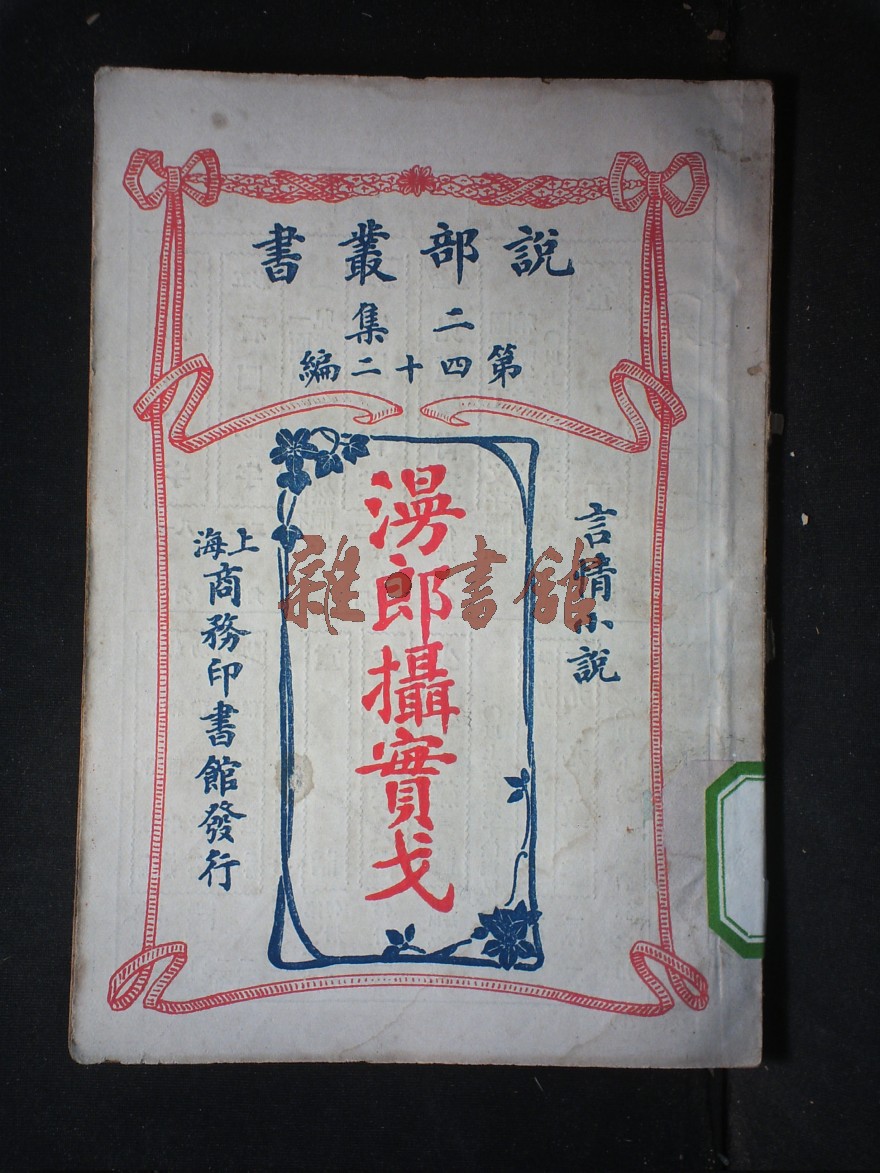 說部叢書
二集
第四十二編
言情小說
漫郎攝實戈
上海
商務印書館發行
雜·書館